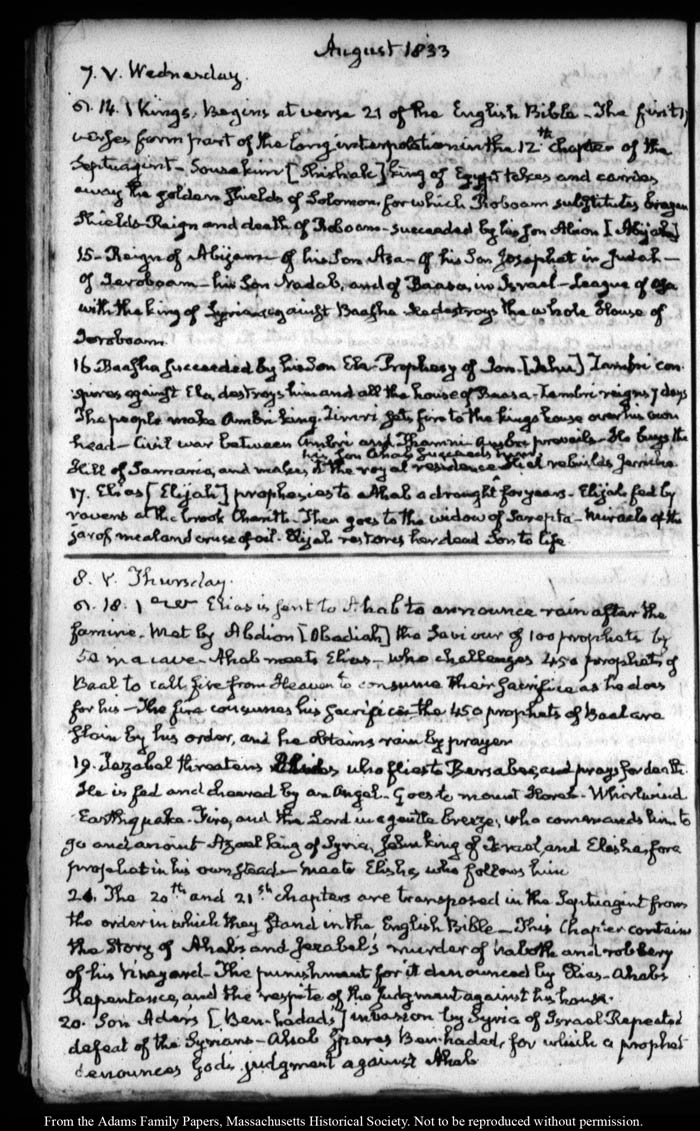 August 1833
7. V. Wednesday.
14. 1 Kings. Begins at verse 21 of the English Bible – The first
verses form part of the long interpolation in the 12th chapter of the
Septuagint – Sousakim [Shishak] king of Egypt takes and carries
away the golden shields of Solomon, for which Roboam substitutes brazen
shields – Reign and death of Roboam – succeeded by his Son [Abijah]
15 – Reign of – of his Son Asa – of his Son Josaphat in Judah –
of Jeroboam – his Son Nadab, and of Baasa, in Israel – League of Asa
with the king of Syria against Baasha destroys the whole House of
Jeroboam.
16 Baasha succeeded by his Son Ela – Prophesy of Jou. [Jehu] Zambri con-
spires against Ela, destroys him and all the house of Baasa – Zambri reigns 7 days
The people make Ambri king. Zimri sets fire to the kings house over his own
head – Civil war between Ambri and Thamni – Ambri prevails – He buys the
his Son Ahab succeeds him
Hill of Samaria, and makes it the royal residence – Hiel rebuilds Jericho
17. Elias [Elijah] prophesies to Ahab a drought for years – Elijah fed by
ravens at the brook Charith – Then goes to the widow of Sarepta – Miracle of the
jar of meal and cruse of oil – Elijah restores her dead Son to life
8. V. Thursday.
18. Elias is sent to Ahab to announce rain after the
famine – Met by Abdiou [Obadiah] the Saviour of 100 prophets by
50 in a cave – Ahab meets Elias – who challenges 450 prophets of
Baal to call fire from Heaven to consume their Sacrifice as he does
for his – The fire consumes his Sacrifice – the 450 prophets of Baal are
slain by his order, and he obtains rain by prayer
19. Jezabel threatens who flies to Bersabee, and prays for death.
He is fed and cheered by an Angel – Goes to mount Horeb – Whirlwind
Earthquake – Fire, and the Lord in a gentle breeze, who commands him to
go and anoint Azael king of Syria, Jehu king of Israel, and Elisha, for a
prophet in his own stead – meets Elisha, who follows him
The 20th and 21st chapters are transposed in the Septuagint from
the order in which they stand in the English Bible – This Chapter contains
the Story of Ahab's and Jezabel's murder of Naboth and robbery
of his Vineyard – The punishment for it denounced by Elias – Ahab's
Repentance, and the respite of the judgment against his house.
20. Son Ader's [Ben-hadad's] invasion by Syria of Israel Repeated
defeat of the Syrians – Ahab spares Ben-hadad, for which a prophet
denounces Gods judgment against Ahab
From the Adams Family Papers, Massachusetts Historical Society. Not to be reproduced without permission.